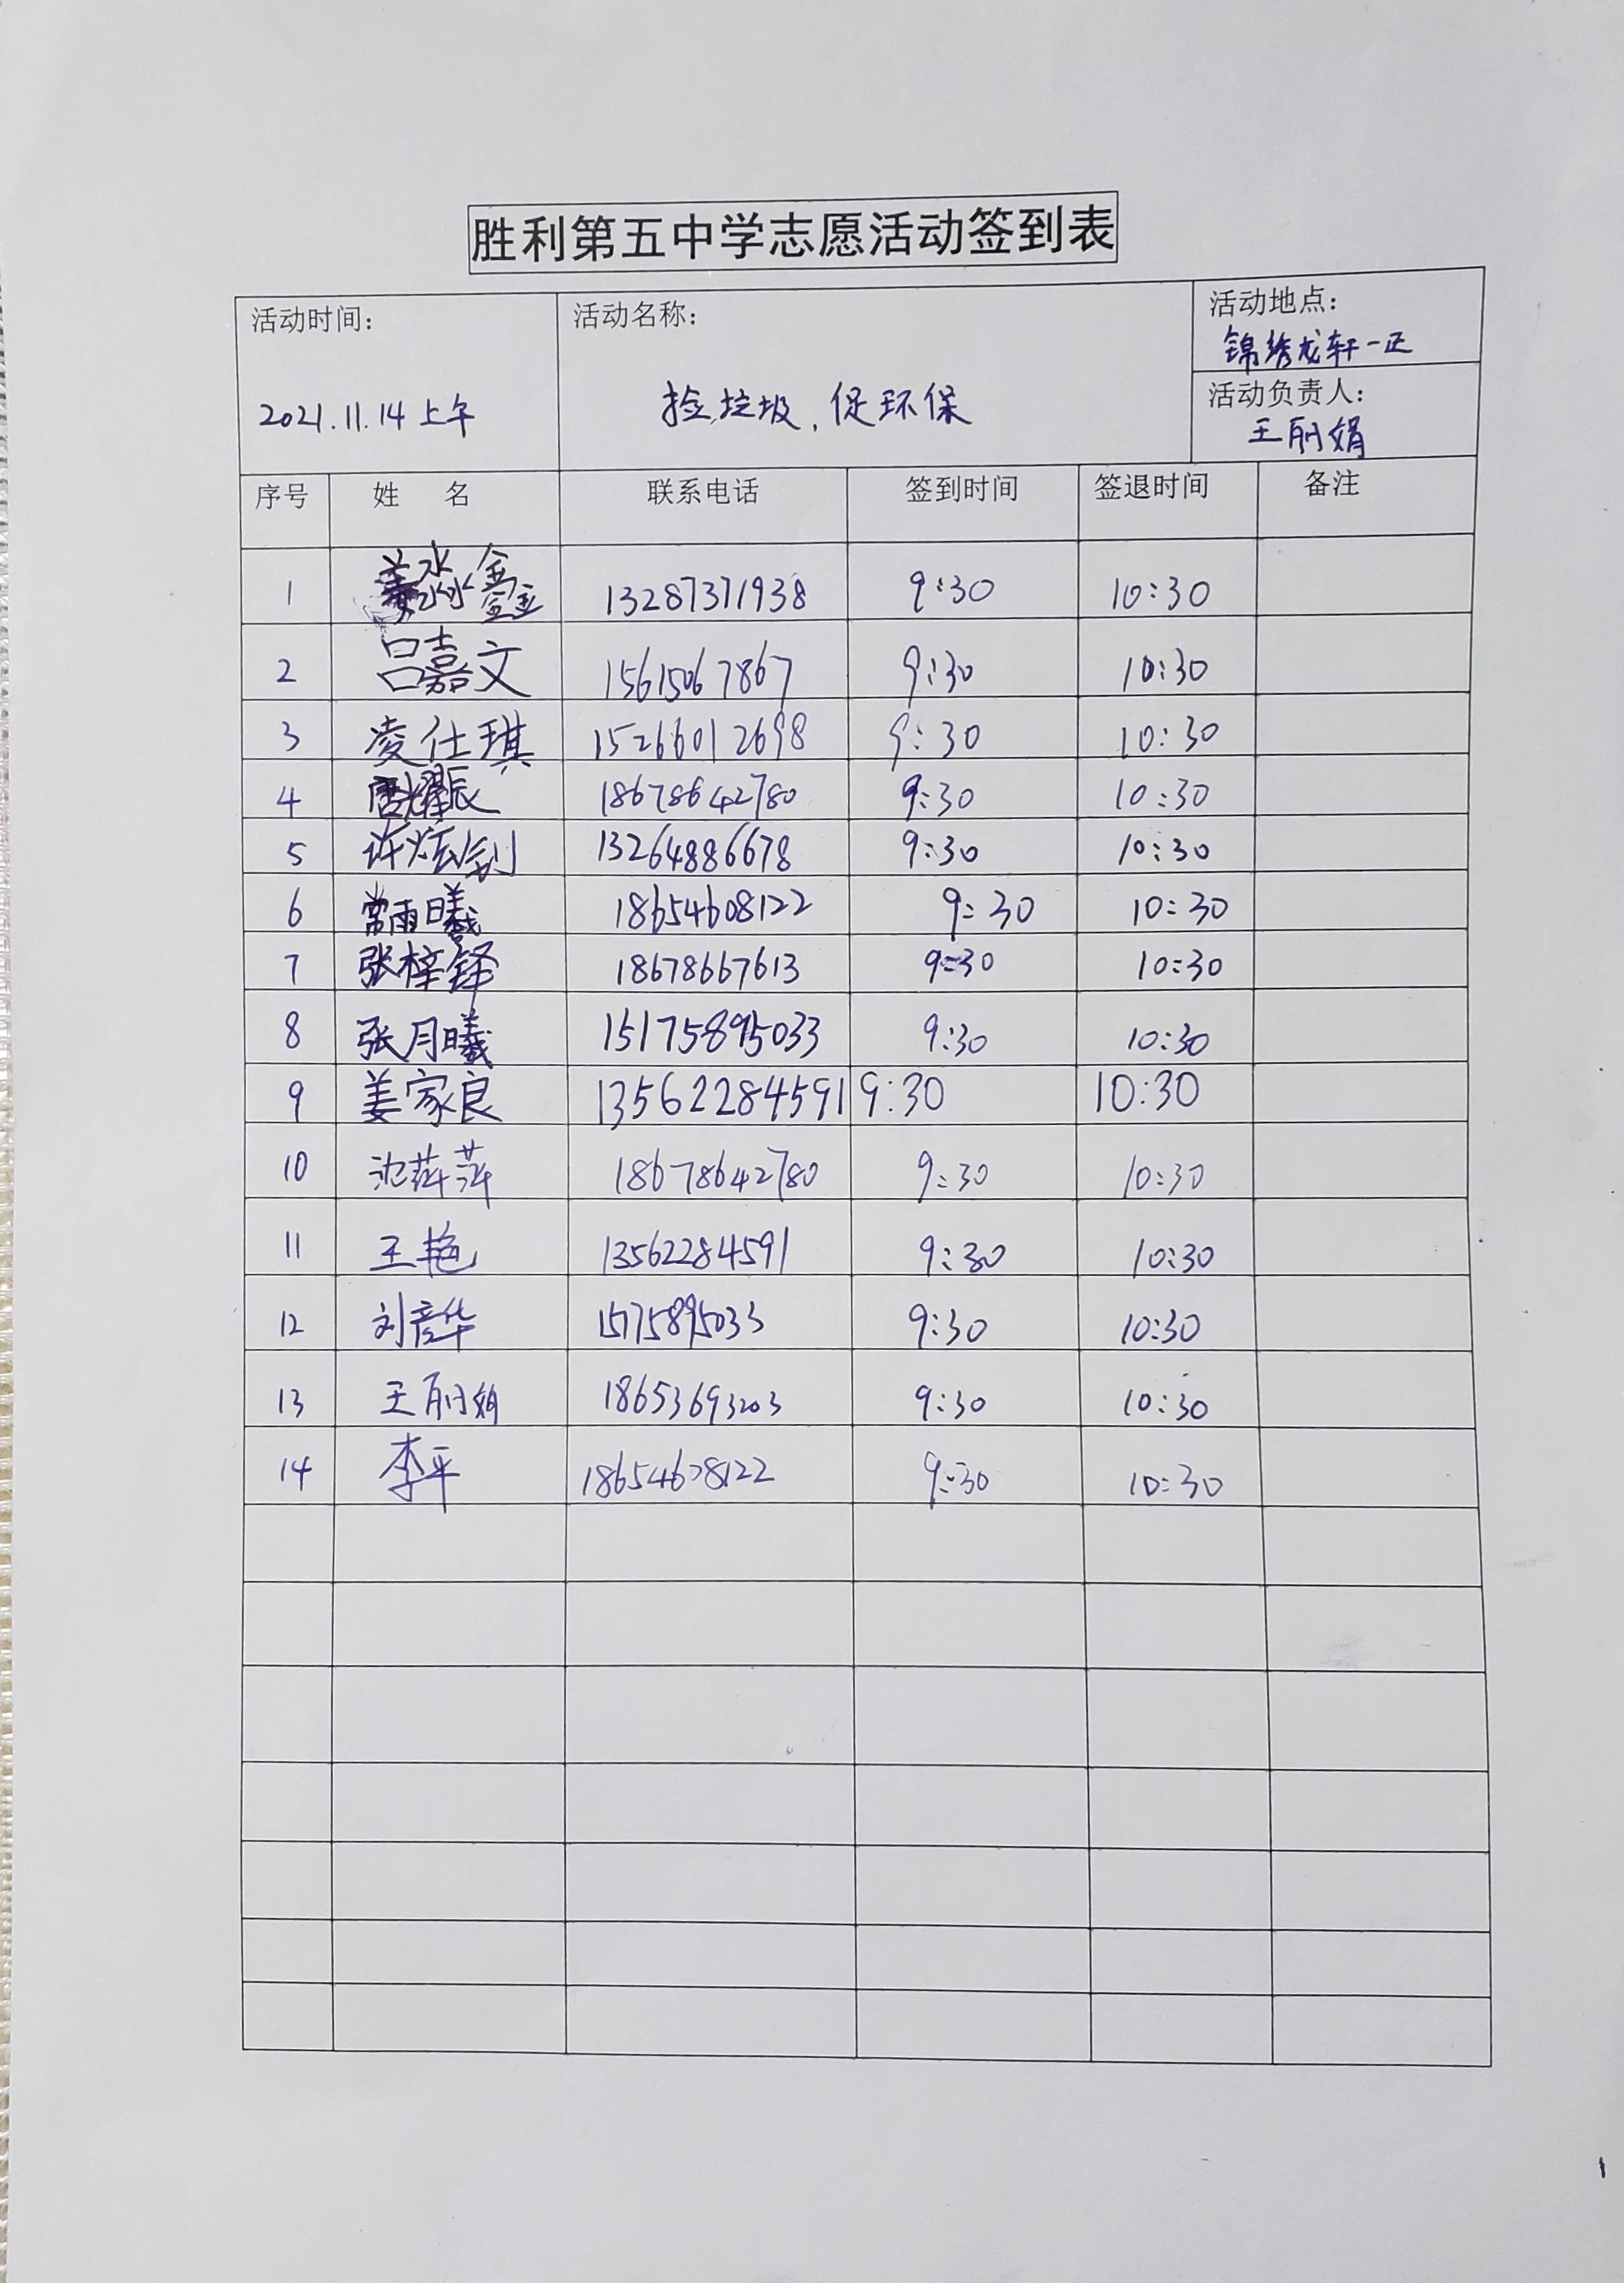 胜利第五中学志愿活动签到表
活动时间：
2021.11.14 上午
活动名称：
捡垃圾，促环保
活动地点：
锦绣龙轩一区
活动负责人：
王丽娟
序号 姓 名 联系电话 签到时间 签退时间 备注
1 姜淼鑫 13287371938 9:30 10:30
2 吕嘉文 15615067867 9:30 10:30
3 凌仕琪 15266012698 9:30 10:30
4 唐耀辰 18678642780 9:30 10:30
5 许炫 13264886678 9:30 10:30
6 常雨曦 18654608122 9:30 10:30
7 张梓铎 18678667613 9:30 10:30
8 张月曦 15175895033 9:30 10:30
9 姜家良 13562284591 9:30 10:30
10 沈萍萍 18678642780 9:30 10:30
11 王艳 13562284591 9:30 10:30
12 刘彦华 15175895033 9:30 10:30
13 王丽娟 18653693203 9:30 10:30
14 李平 18654608122 9:30 10:30